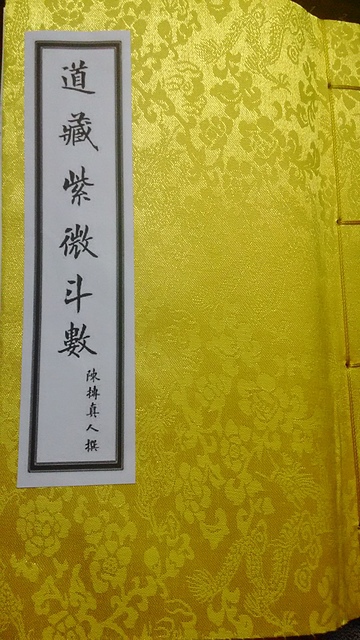 道藏紫微斗數
陳摶真人撰